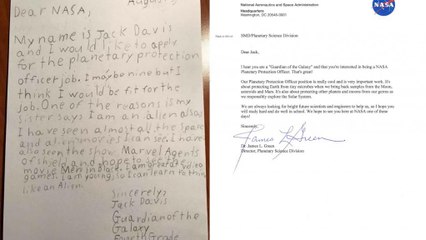 August
Dear NASA,
My name is Jack Davis
and I would like to apply
for the planetary protection
officer job. I may be nine but I
think I would be fit for the
job. One of the reasons is
my sister says I am an alien also
I have seen almost all the space
and alien movies I can see. I have
also seen the show Marvel Agents
of Shield and hope to see the
movie Men in Black. I am great at video
games. I am young, so I can learn to think
like an Alien.
Sincerely,
Jack Davis
Guardian of the
Galaxy
Fourth Grade
National Aeronautics and Space Administration
Headquarters
Washington, DC 20546-0001
NASA
SMD/Planetary Science Division
Dear Jack,
I hear you are a "Guardian of the Galaxy" and that you're interested in being a NASA
Planetary Protection Officer. That's great!
Our Planetary Protection Officer position is really cool and is very important work. It's
about protecting Earth from tiny microbes when we bring back samples from the Moon,
asteroids and Mars. It's also about protecting other planets and moons from our germs as
we responsibly explore the Solar System.
We are always looking for bright future scientists and engineers to help us, so I hope you
will study hard and do well in school. We hope to see you here at NASA one of these
days!
Sincerely,
James L Green
Dr. James L. Green
Director, Planetary Science Division